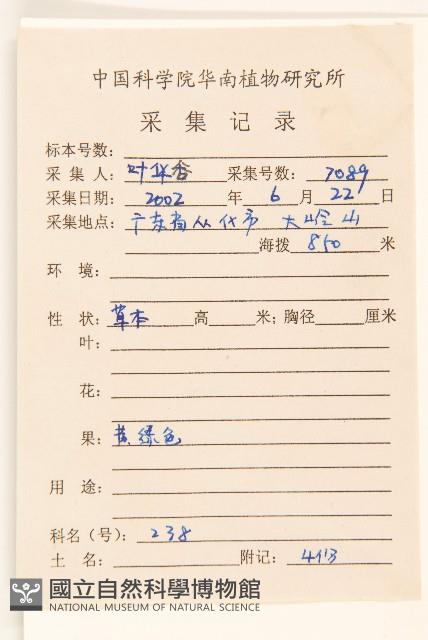 中国科学院华南植物研究所
采集记录
标本号数：
采集人：叶华谷 采集号数：7089
采集日期：2002年6月22日
采集地点：广东省从化市 大岭山
海拨 850 米
环境：
性状：草本 高 米；胸径 厘米
叶：
花：
果：黄绿色
用途：
科名（号）：238
土名： 附记：4份
國立自然科學博物館
NATIONAL MUSEUM OF NATURAL SCIENCE